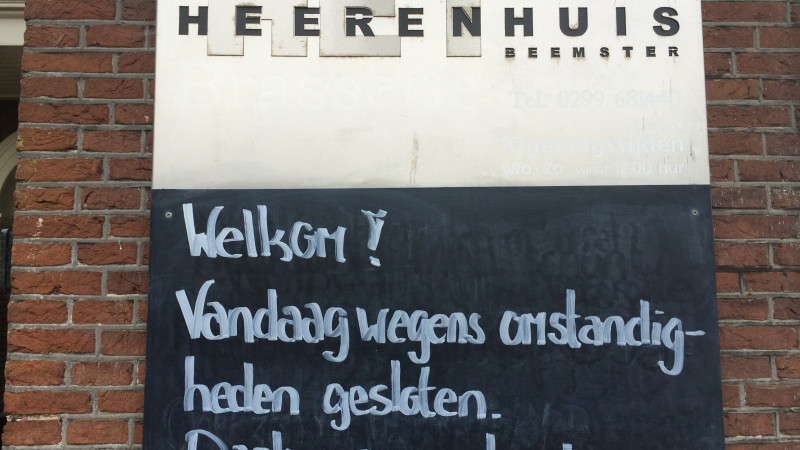 HET
HEERENHUIS
BEEMSTER
Tel. 0299 681
Openingstijden
Wo - Zo vanaf 12.00 uur
Welkom!
Vandaag wegens omstandig-
heden gesloten.